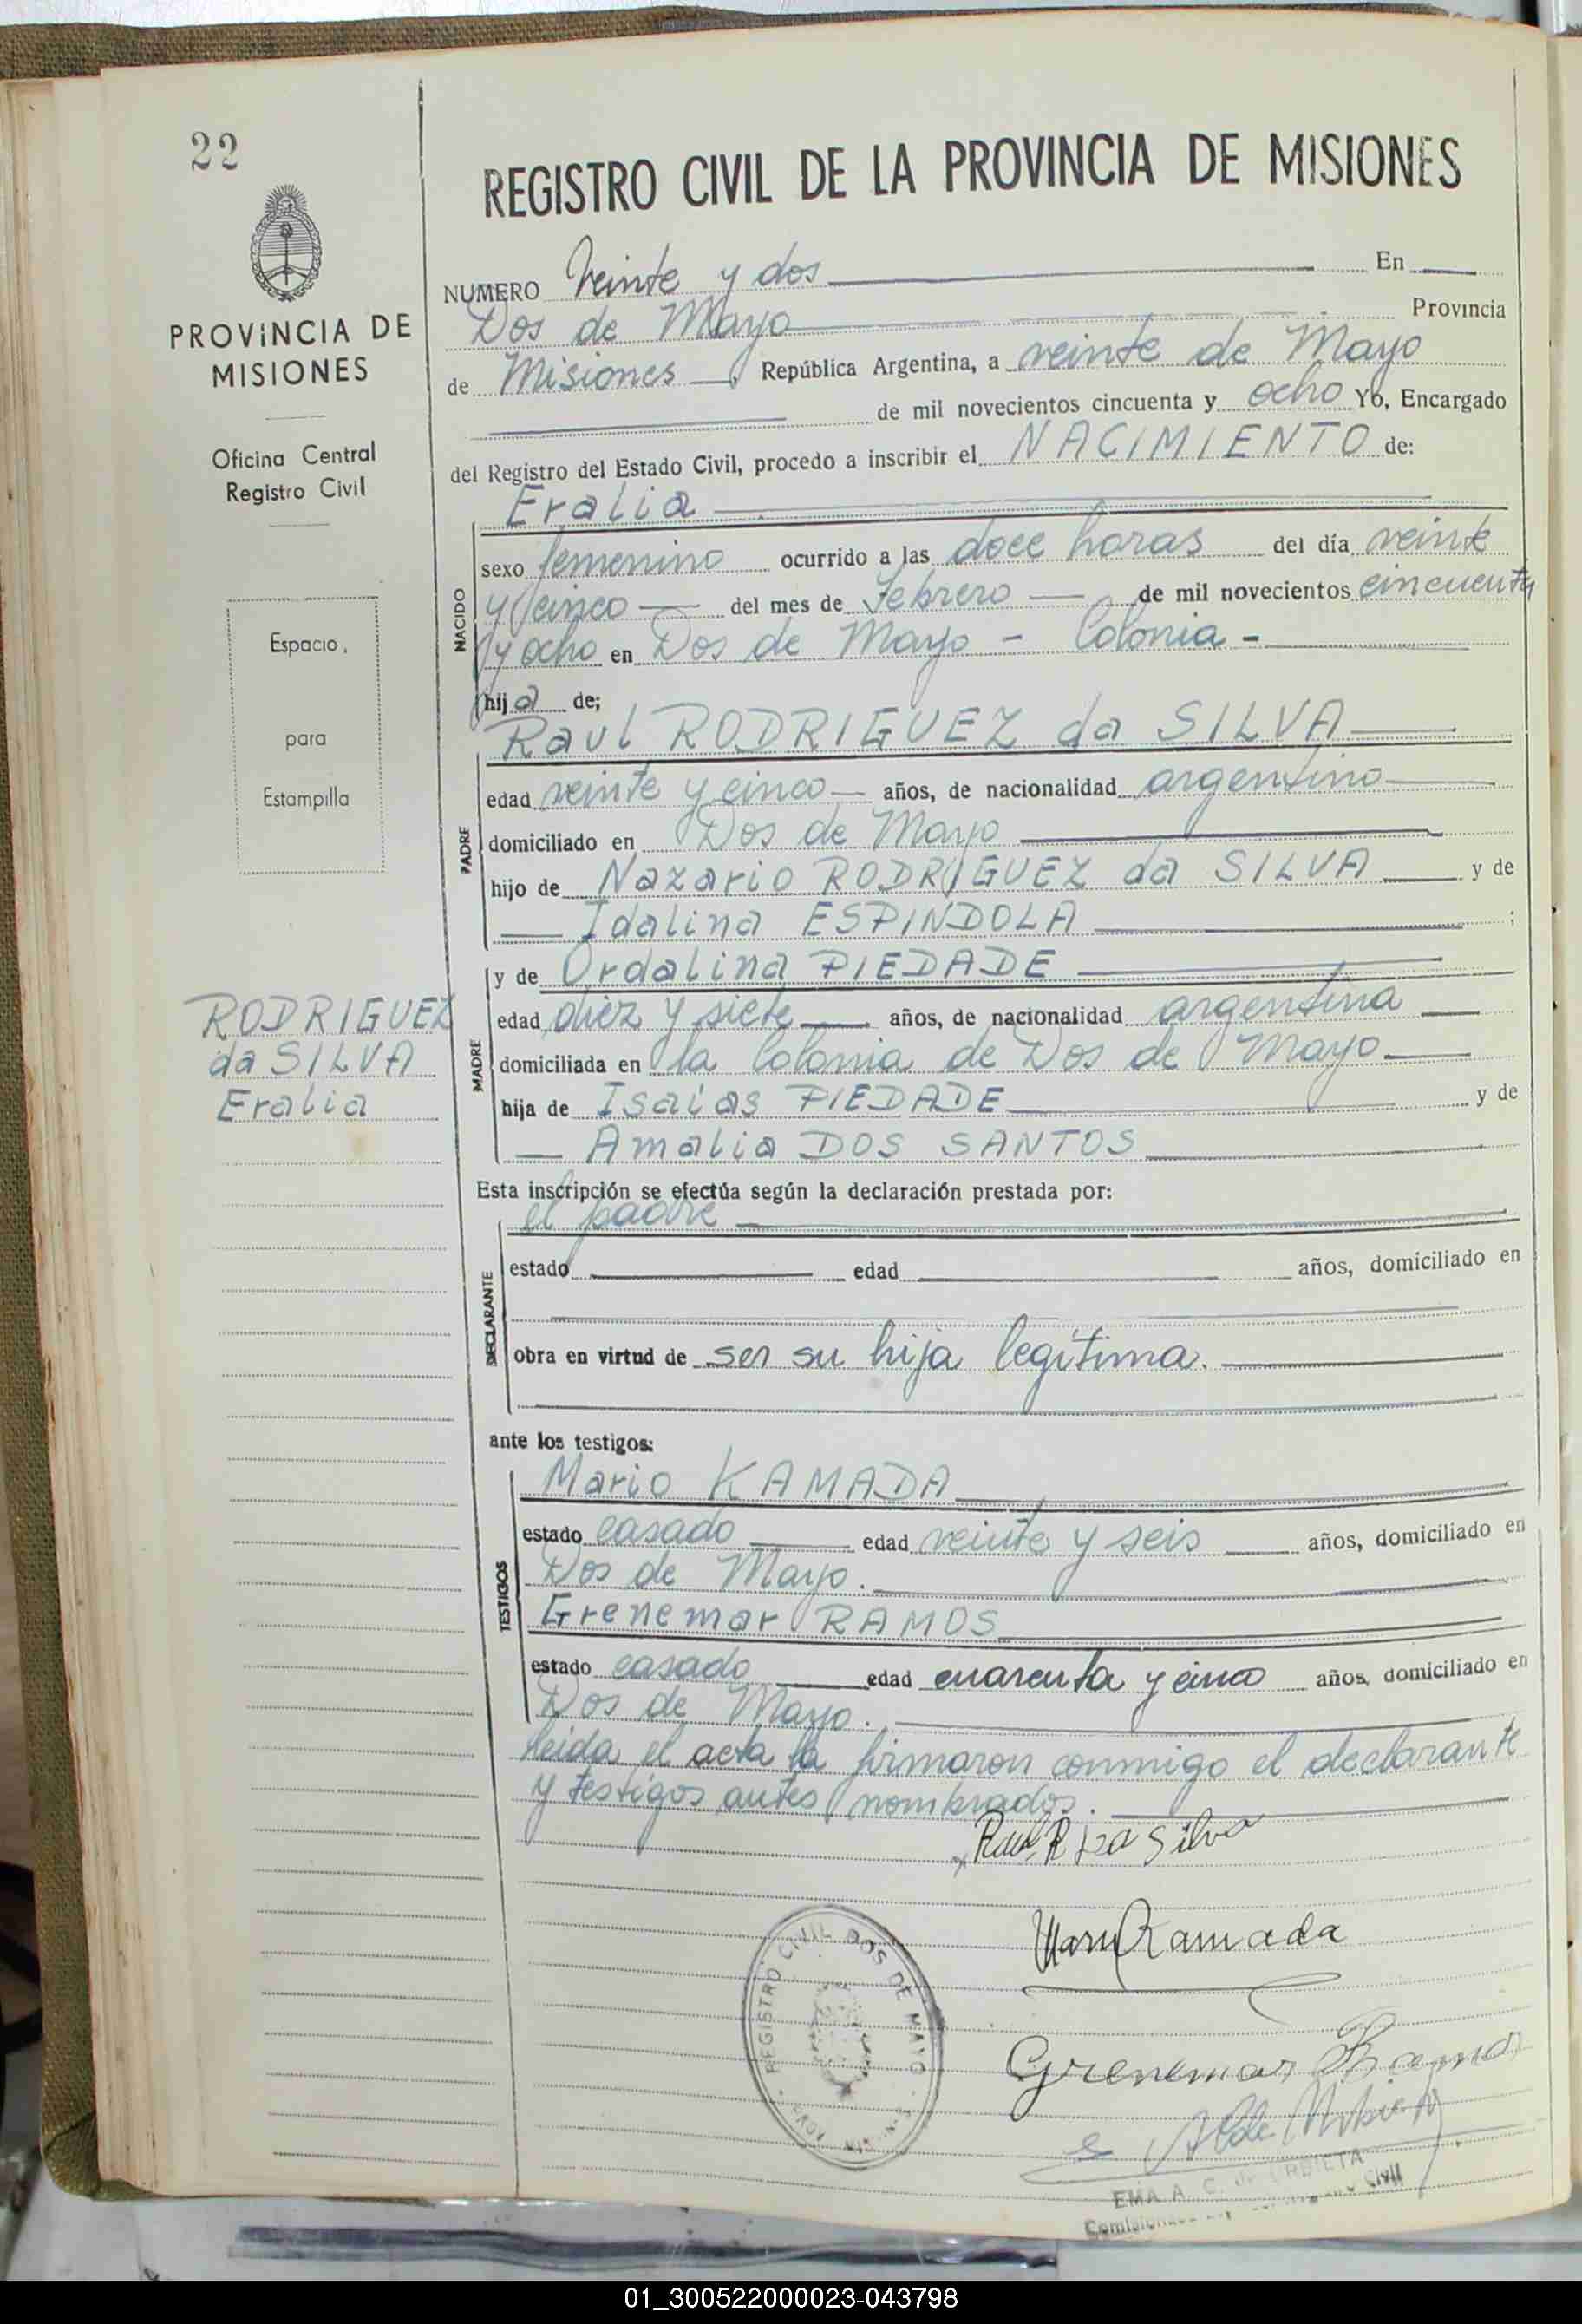 22
REGISTRO CIVIL DE LA PROVINCIA DE MISIONES
PROVINCIA DE
MISIONES
Oficina Central
Registro Civil
Espacio
para
Estampilla
RODRIGUEZ
da SILVA
Eralia
NUMERO Veinte y dos En
Dos de Mayo Provincia
de Misiones, República Argentina, a veinte de Mayo
de mil novecientos cincuenta y ocho Yo, Encargado
del Registro del Estado Civil, procedo a inscribir el NACIMIENTO de:
Eralia
NACIDO
sexo femenino ocurrido a las doce horas del día veinte
y cinco del mes de Febrero de mil novecientos cincuenta
y ocho en Dos de Mayo - Colonia -
hija de;
Raul RODRIGUEZ da SILVA
PADRE
edad veinte y cinco años, de nacionalidad argentino
domiciliado en Dos de Mayo
hijo de Nazario RODRIGUEZ da SILVA y de
Idalina ESPINDOLA ;
y de Ordalina PIEDADE
MADRE
edad diez y siete años, de nacionalidad argentina
domiciliada en la Colonia de Dos de Mayo
hija de Isaias PIEDADE y de
Amalia DOS SANTOS
Esta inscripción se efectúa según la declaración prestada por:
el padre
DECLARANTE
estado edad años, domiciliado en
obra en virtud de ser su hija legítima.
ante los testigos:
Mario KAMADA
TESTIGOS
estado casado edad veinte y seis años, domiciliado en
Dos de Mayo.
Grenemar RAMOS
estado casado edad cuarenta y cinco años, domiciliado en
Dos de Mayo.
leida el acta la firmaron conmigo el declarante
y testigos antes nombrados.
Raul R da Silva
Mario Kamada
Grenemar Ramos
REGISTRO CIVIL DOS DE MAYO
EMA A. C. de URBIETA
Civil
01_300522000023-043798